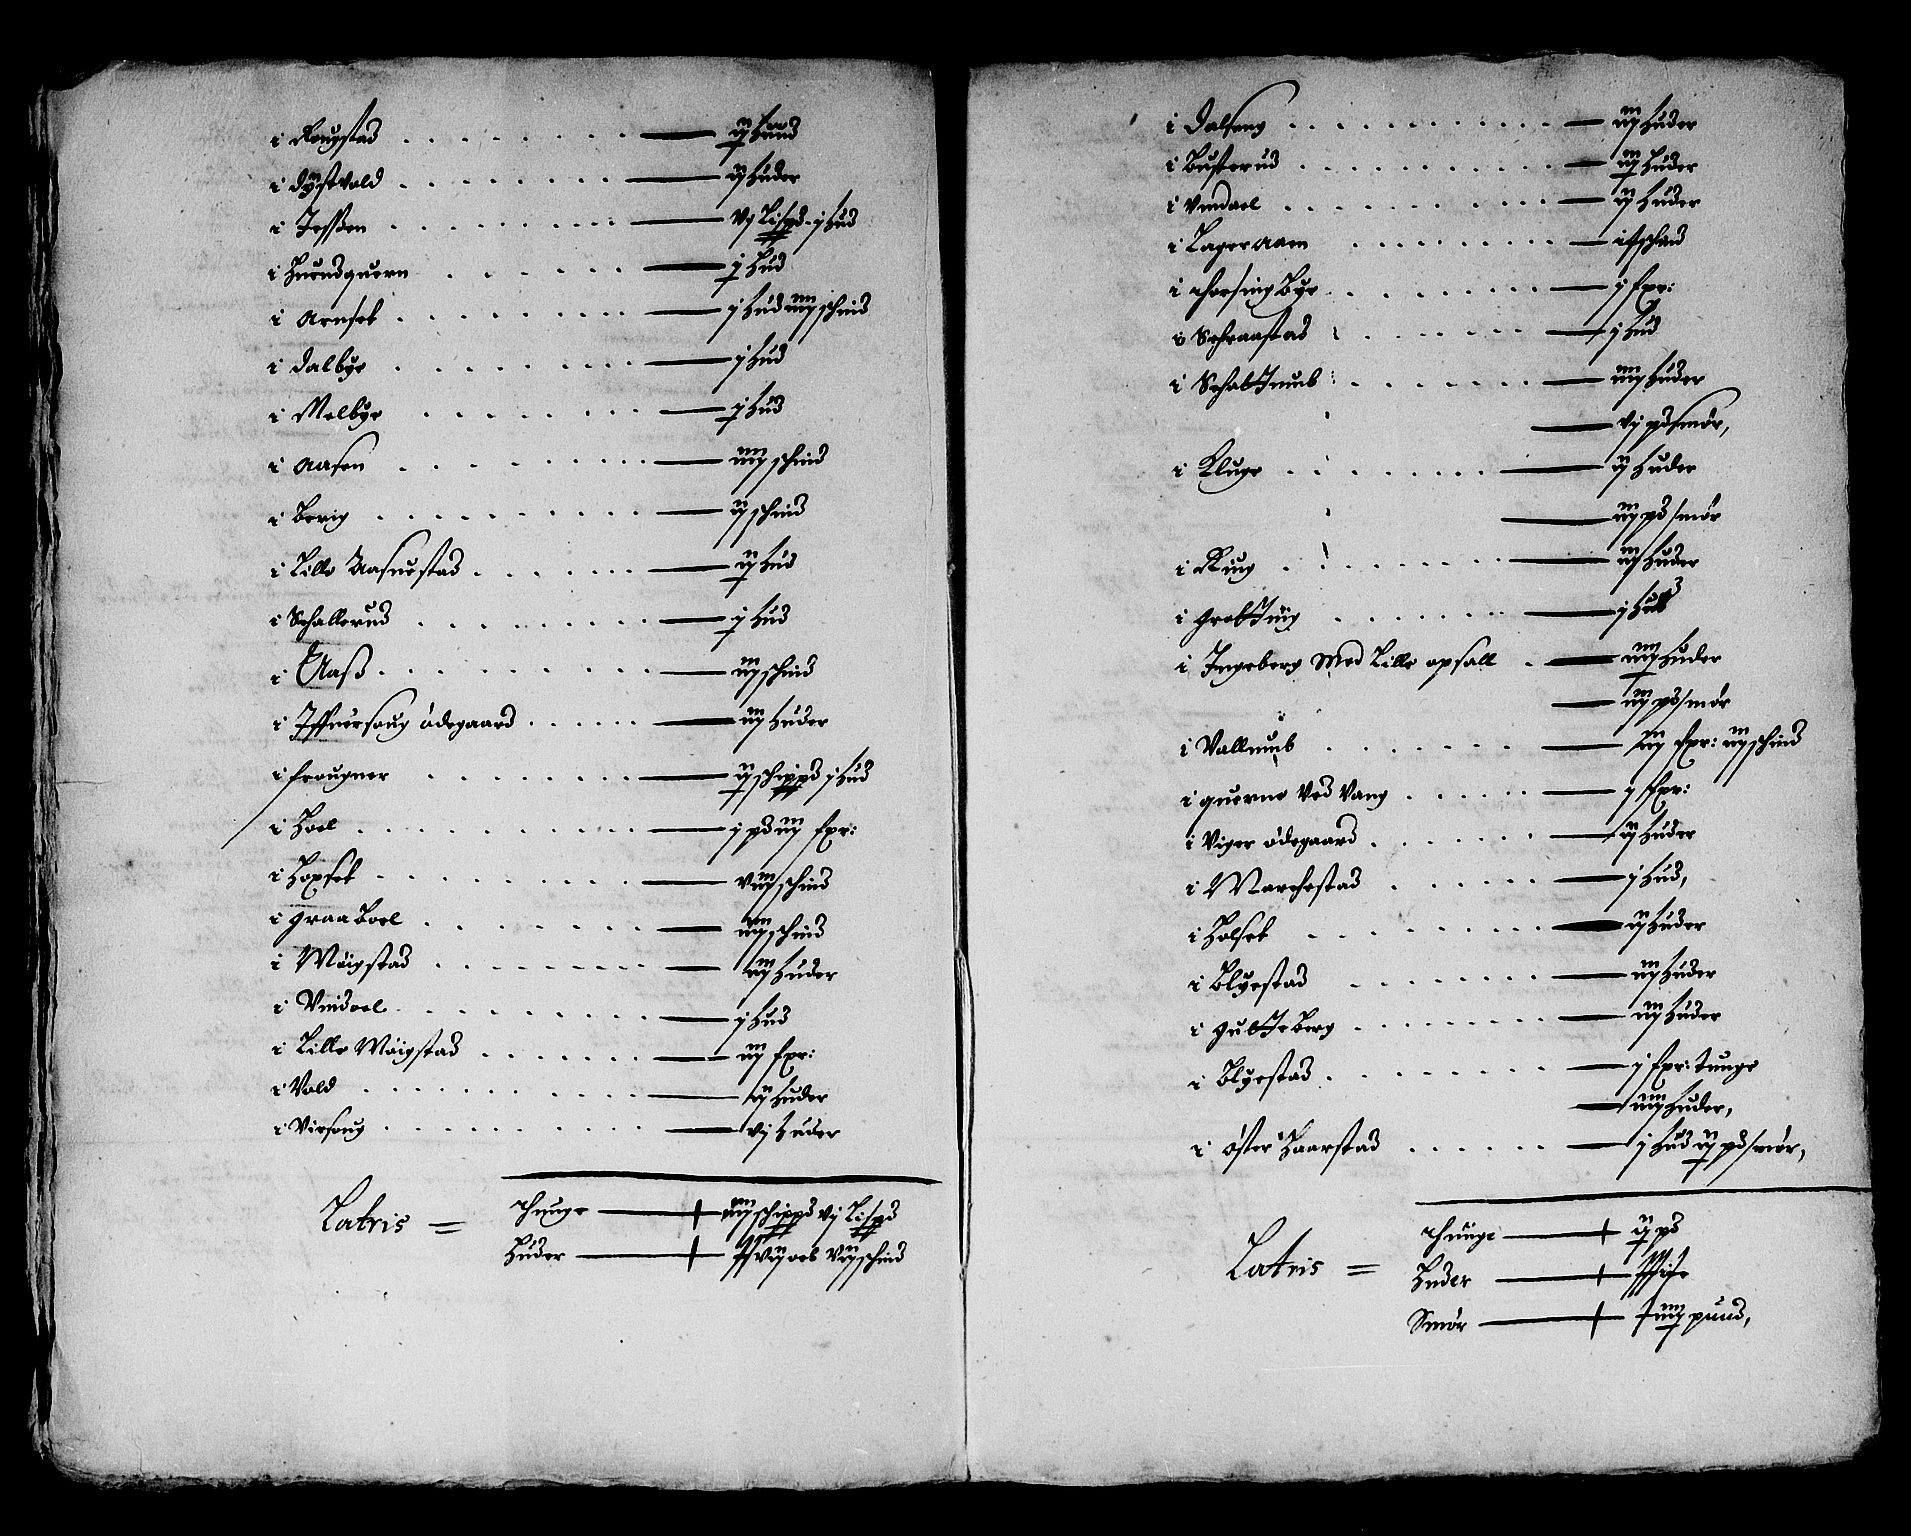 i Rougstad . . . . . . ij Huud
i Dystvold . . . . . . ij Huder
i Jessen . . . . . . vj Lispd. j Hud
i Huusquern . . . . . j Hud
i Arnseb . . . . . . j Hud iiij schind
i Dalbye . . . . . . j Hud
i Melbye . . . . . . j Hud
i Aasen . . . . . . iiij schind
i Berig . . . . . . ij schind
i Lille Aasnestad . . . . ij Hud
i Schallerud . . . . . . j Hud
i Aaß . . . . . . iij schind
i ødegaard . . . . iij Huder
i Frougner . . . . . . ij schippd j Hud
i Hoel . . . . . . j pd iij sxr:
i Hoxseb . . . . . . viij schind
i Graaboel . . . . . . iiij schind
i Møigstad . . . . . . iij Huder
i Vindoel . . . . . . j Hud
i Lille Møigstad . . . . iij sxr:
i Vold . . . . . . ij Huder
i Virsoug . . . . . . vj Huder
Latris =
Thunge — iiij schippd vj Lispd
Huder — schind
i Dalseng . . . . . . iij Huder
i Busterud . . . . . . iij Huder
i Vindoel . . . . . . ij Huder
i Lageraaen . . . . .
i Thorsing Bye . . . . . j sxr:
i Schraastad . . . . . . j Hud
i . . . . . . iiij Huder
vj pd smør,
i Kluge . . . . . . ij Huder
iij pd smør
i Ring . . . . . . iij Huder
i . . . . . . j Hud
i Ingeberg Med Lille opsall . iiij Huder
iij pd smør
i . . . . . . sxr: iij schind
i querne ved Vang . . . . j sxr:
i Viger ødegaard . . . . ij Huder
i Marchestad . . . . . j Hud,
i Holseb . . . . . . ij Huder
i Blyestad . . . . . . iij Huder
i Gubbeberg . . . . . . iij Huder
i Blyestad . . . . . . j sxr: tunge
iiij Huder,
i Øster Haarstad . . . . . j Hud ij pd smør,
Latris =
Thunge — ij pd
Huder —
Smør — pund,